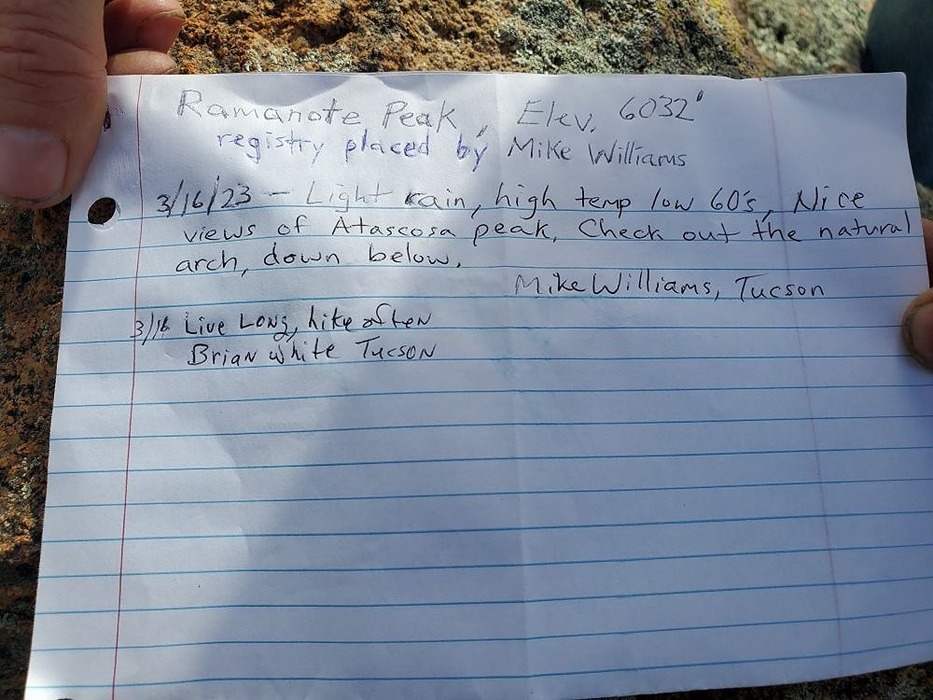 Ramanote Peak, Elev. 6032'
registry placed by Mike Williams
3/16/23 — Light rain, high temp low 60's, Nice
views of Atascosa peak, Check out the natural
arch, down below.
Mike Williams, Tucson
3/16 Live Long, hike often
Brian White Tucson